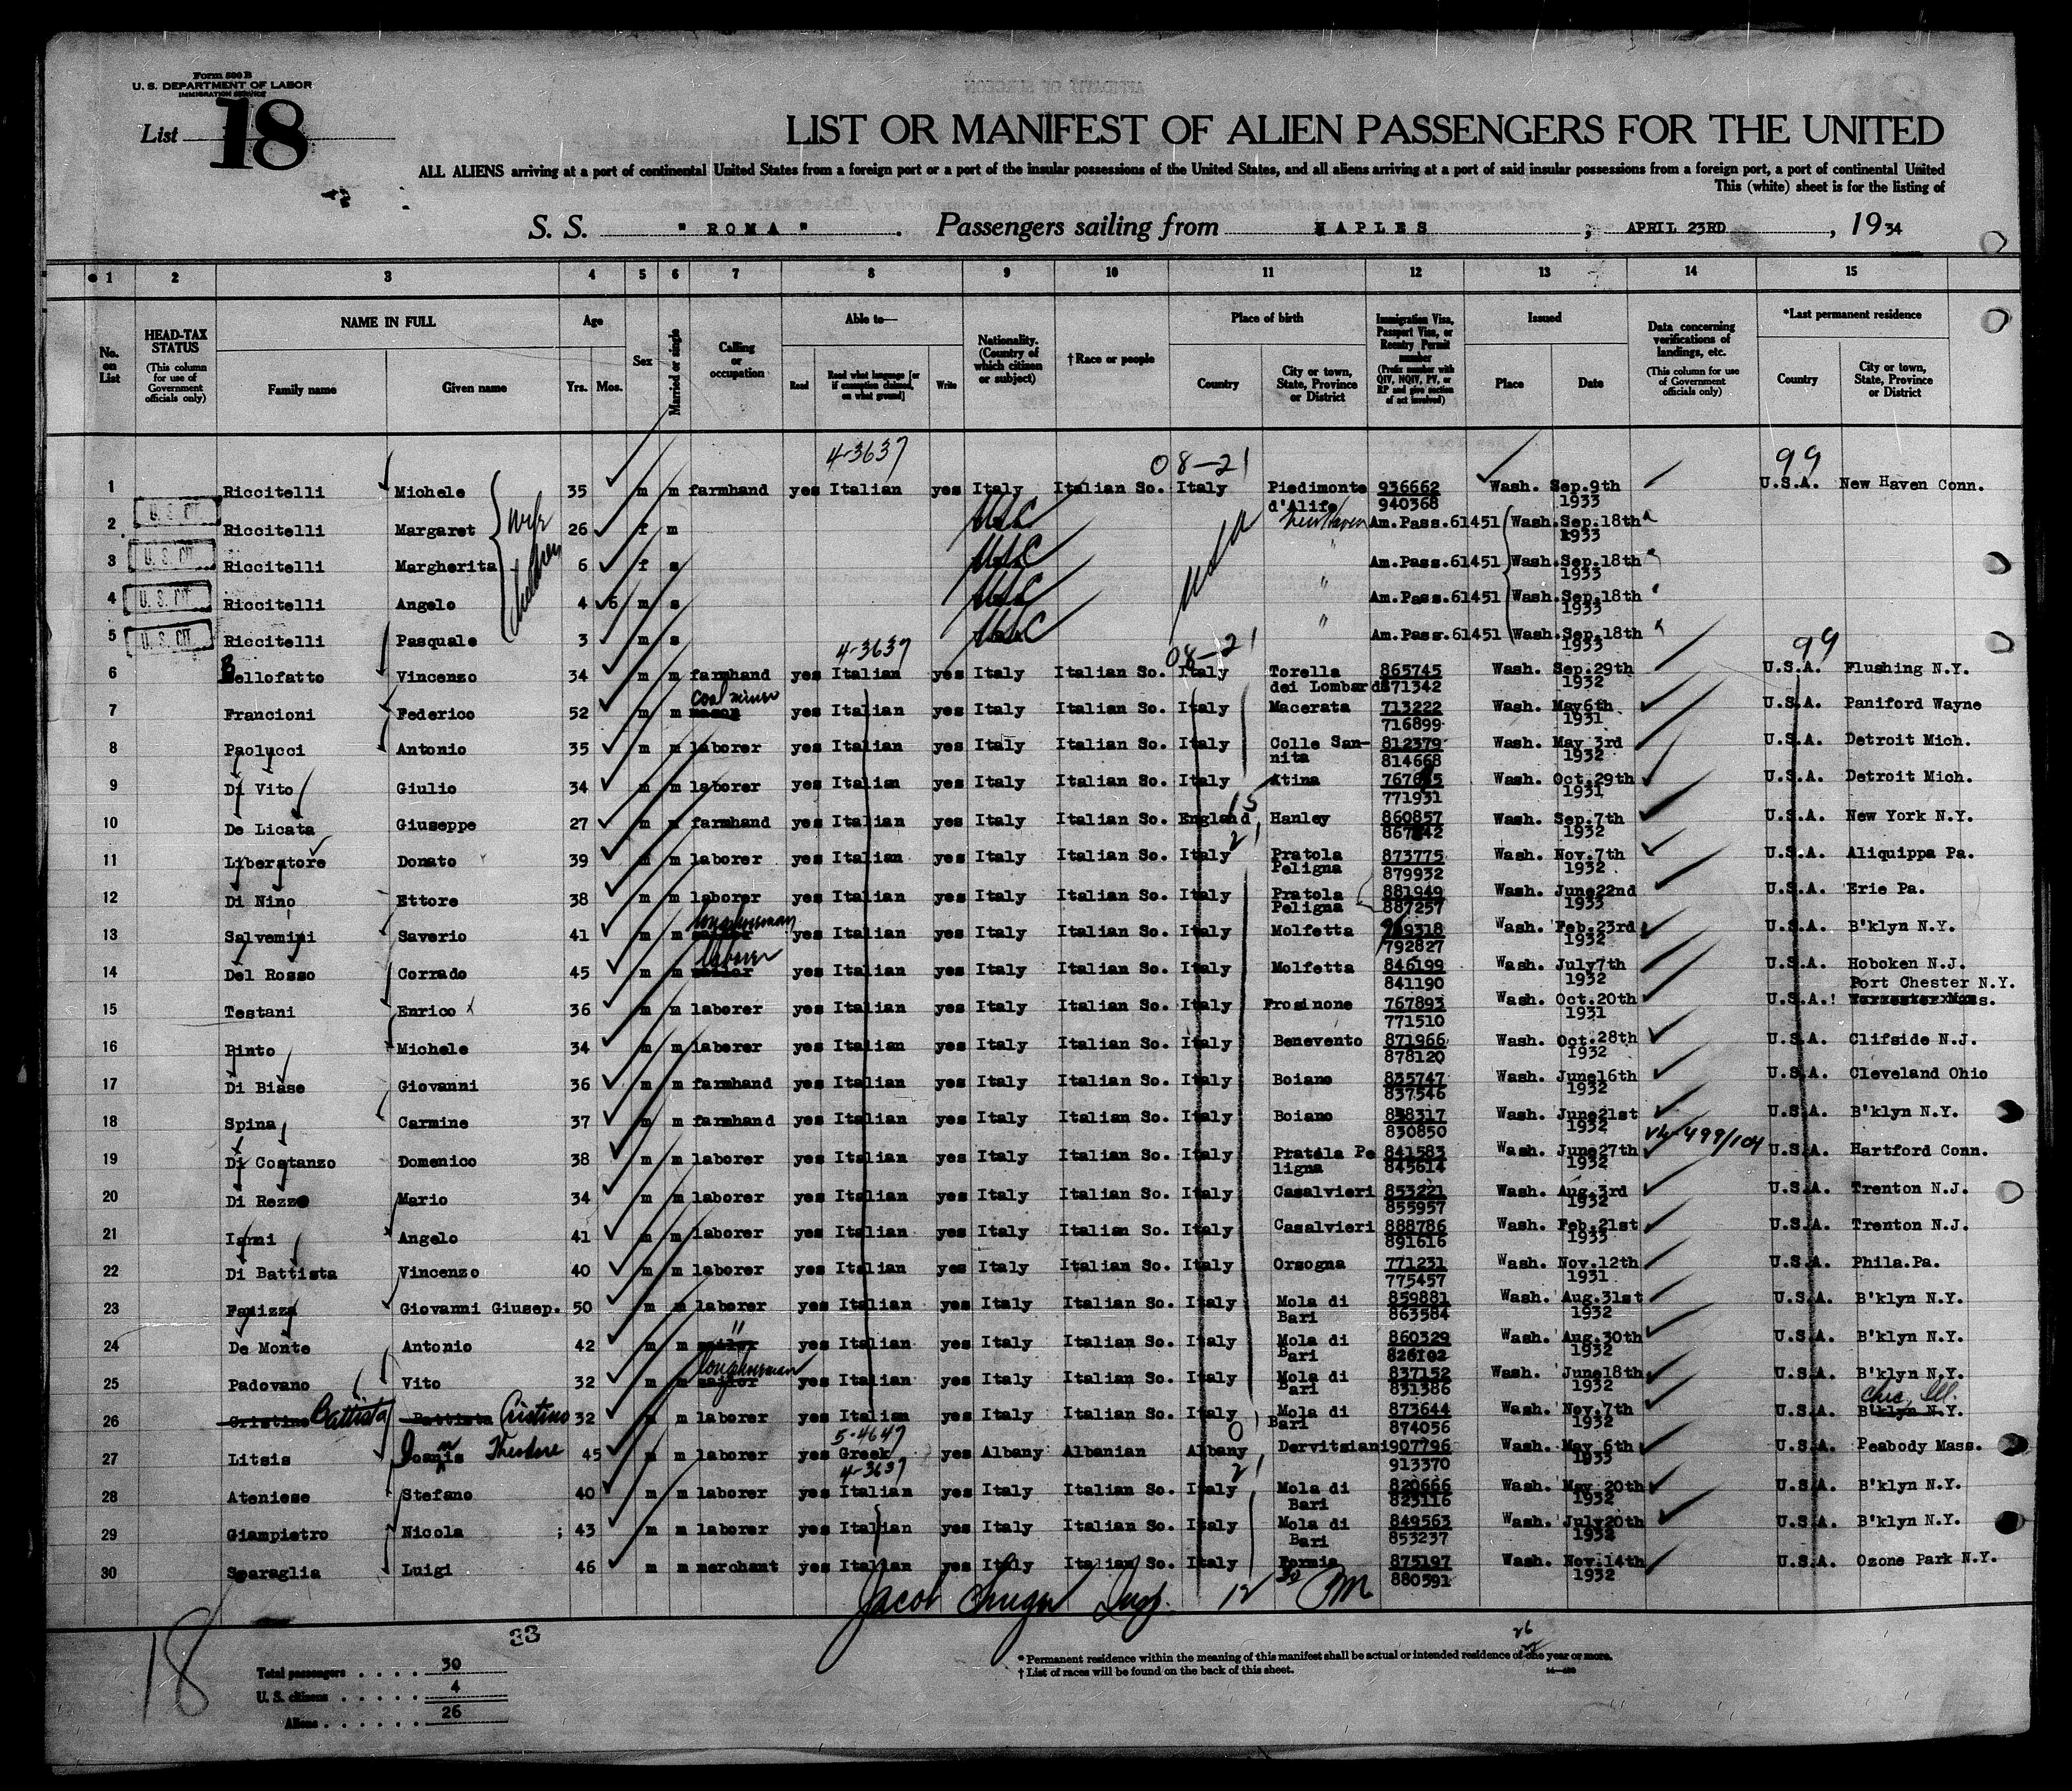 Form 500 B
U. S. DEPARTMENT OF LABOR
IMMIGRATION SERVICE
List 18
LIST OR MANIFEST OF ALIEN PASSENGERS FOR THE UNITED
ALL ALIENS arriving at a port of continental United States from a foreign port or a port of the insular possessions of the United States, and all aliens arriving at a port of said insular possessions from a foreign port, a port of continental United
This (white) sheet is for the listing of
S. S. " ROMA " . Passengers sailing from NAPLES ; APRIL 23RD , 19 34
1 2 3 4 5 6 7 8 9 10 11 12 13 14 15
No. on List
HEAD-TAX STATUS (This column for use of Government officials only)
NAME IN FULL Family name Given name
Age Yrs. Mos.
Sex
Married or single
Calling or occupation
Able to— Read Read what language [or if exemption claimed, on what ground] Write
Nationality. (Country of which citizen or subject)
†Race or people
Place of birth Country City or town, State, Province or District
Immigration Visa, Passport Visa, or Reentry Permit number (Prefix number with QIV, NQIV, PV, or RP and give section of act involved)
Issued Place Date
Data concerning verifications of landings, etc. (This column for use of Government officials only)
*Last permanent residence Country City or town, State, Province or District
4-3637 08-21 99
1 Riccitelli Michele 35 m m farmhand yes Italian yes Italy Italian So. Italy Piedimonte d'Alife 936662 940368 Wash. Sep.9th 1933 U.S.A. New Haven Conn.
2 U. S. CIT. Riccitelli Margaret wife 26 f m USC New Haven Am.Pass.61451 Wash.Sep.18th 1933
3 U. S. CIT. Riccitelli Margherita children 6 f s USC " Am.Pass.61451 Wash.Sep.18th 1933
4 U. S. CIT. Riccitelli Angelo 4 6 m s USC " Am.Pass.61451 Wash.Sep.18th 1933
5 U. S. CIT. Riccitelli Pasquale 3 m s USC " Am.Pass.61451 Wash.Sep.18th 1933
4-3637 08-21 99
6 Bellofatto Vincenzo 34 m m farmhand yes Italian yes Italy Italian So. Italy Torella dei Lombardi 865745 871342 Wash. Sep.29th 1932 U.S.A. Flushing N.Y.
7 Francioni Federico 52 m m coal miner yes Italian yes Italy Italian So. Italy Macerata 713222 716899 Wash. May6th 1931 U.S.A. Paniford Wayne
8 Paolucci Antonio 35 m m laborer yes Italian yes Italy Italian So. Italy Colle San-nita 812379 814668 Wash. May 3rd 1932 U.S.A. Detroit Mich.
9 Di Vito Giulio 34 m m laborer yes Italian yes Italy Italian So. Italy Atina 771931 Wash. Oct.29th 1931 U.S.A. Detroit Mich.
10 De Licata Giuseppe 27 m m farmhand yes Italian yes Italy Italian So. England 15 Hanley 860857 Wash. Sep.7th 1932 U.S.A. New York N.Y.
11 Liberatore Donato 39 m m laborer yes Italian yes Italy Italian So. Italy 21 Pratola Peligna 873775 879932 Wash. Nov.7th 1932 U.S.A. Aliquippa Pa.
12 Di Nino Ettore 38 m m laborer yes Italian yes Italy Italian So. Italy Pratola Peligna 881949 887257 Wash. June22nd 1933 U.S.A. Erie Pa.
13 Salvemini Saverio 41 m m longshoreman yes Italian yes Italy Italian So. Italy Molfetta 792827 Wash. Feb.23rd 1932 U.S.A. B'klyn N.Y.
14 Del Rosso Corrado 45 m m sailor laborer yes Italian yes Italy Italian So. Italy Molfetta 846199 841190 Wash. July7th 1932 U.S.A. Hoboken N.J.
15 Testani Enrico 36 m m laborer yes Italian yes Italy Italian So. Italy Frosinone 767893 771510 Wash. Oct.20th 1931 U.S.A. Port Chester N.Y.
16 Pinto Michele 34 m m laborer yes Italian yes Italy Italian So. Italy Benevento 871966 878120 Wash. Oct.28th 1932 U.S.A. Clifside N.J.
17 Di Biase Giovanni 36 m m farmhand yes Italian yes Italy Italian So. Italy Boiano 835747 837546 Wash. June16th 1932 U.S.A. Cleveland Ohio
18 Spina Carmine 37 m m farmhand yes Italian yes Italy Italian So. Italy Boiano 838317 830850 Wash. June21st 1932 U.S.A. B'klyn N.Y.
19 Di Costanzo Domenico 38 m m laborer yes Italian yes Italy Italian So. Italy Pratola Pe ligna 841583 845614 Wash. June27th 1932 499/104 U.S.A. Hartford Conn.
20 Di Rezze Mario 34 m m laborer yes Italian yes Italy Italian So. Italy Casalvieri 853221 855957 Wash. Aug.3rd 1932 U.S.A. Trenton N.J.
21 Iarmi Angelo 41 m m laborer yes Italian yes Italy Italian So. Italy Casalvieri 888786 891616 Wash. Feb.21st 1933 U.S.A. Trenton N.J.
22 Di Battista Vincenzo 40 m m laborer yes Italian yes Italy Italian So. Italy Orsogna 771231 775457 Wash. Nov.12th 1931 U.S.A. Phila.Pa.
23 Fanizza Giovanni Giusep. 50 m m laborer yes Italian yes Italy Italian So. Italy Mola di Bari 859881 863584 Wash. Aug.31st 1932 U.S.A. B'klyn N.Y.
24 De Monte Antonio 42 m m sailor " yes Italian yes Italy Italian So. Italy Mola di Bari 860329 826102 Wash. Aug.30th 1932 U.S.A. B'klyn N.Y.
25 Padovano Vito 32 m m sailor longshoreman yes Italian yes Italy Italian So. Italy Mola di Bari 837152 831386 Wash. June18th 1932 U.S.A. B'klyn N.Y.
26 Cristino Battista Battista Cristino 32 m m laborer yes Italian yes Italy Italian So. Italy Mola di Bari 873644 874056 Wash. Nov.7th 1932 U.S.A. B'klyn N.Y. Chic, Ill.
5-4647 01
27 Litsis Ioannis Theodore 45 m m laborer yes Greek yes Albany Albanian Albany Dervitsiani 907796 913370 Wash. May 6th 1933 U.S.A. Peabody Mass.
4-3637 21
28 Ateniese Stefano 40 m m laborer yes Italian yes Italy Italian So. Italy Mola di Bari 820666 823116 Wash. May 20th 1932 U.S.A. B'klyn N.Y.
29 Giampietro Nicola ; 43 m m laborer yes Italian yes Italy Italian So. Italy Mola di Bari 849563 853237 Wash. July20th 1932 U.S.A. B'klyn N.Y.
30 Sparaglia Luigi 46 m m merchant yes Italian yes Italy Italian So. Italy Formia 875197 880591 Wash. Nov.14th 1932 U.S.A. Ozone Park N.Y.
Jacob Insp. 12
33
18
Total passengers . . . . 30
U. S. citizens . . . . . 4
Aliens . . . . . . 26
* Permanent residence within the meaning of this manifest shall be actual or intended residence of one year or more.
† List of races will be found on the back of this sheet.